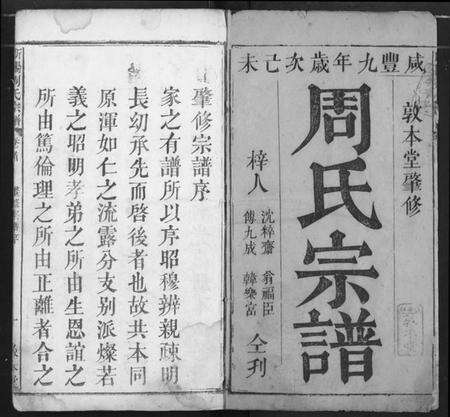 咸豐九年歲次己未
敦本堂肇修
周氏宗譜
梓人
沈梓齋 翁福臣
傅九成 韓樂富
仝刋
肇修宗譜序
家之有譜所以序昭穆辨親疎明
長幼承先而啓後者也故共本同
原渾如仁之流露分支別派燦若
義之昭明孝弟之所由生恩誼之
所由篤倫理之所由正離者合之